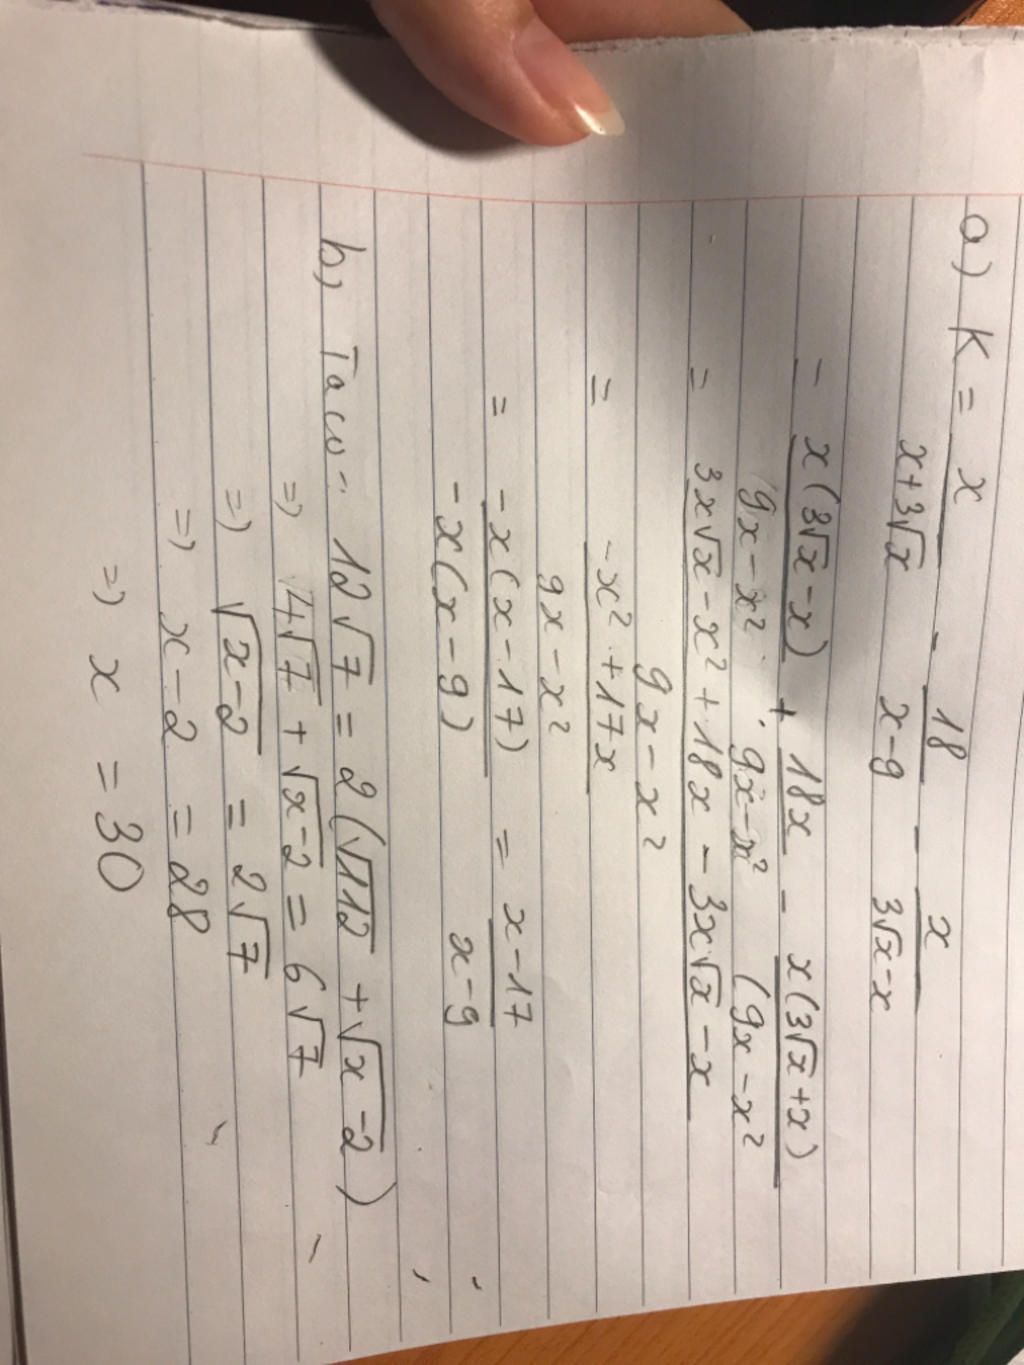 a) K = x/(x+3√x) - 18/(x-9) - x/(3√x-x)
= x(3√x-x)/(9x-x²) + 18x/(9x-x²) - x(3√x+x)/(9x-x²
= (3x√x-x²+18x-3x√x-x)/(9x-x²)
= (-x²+17x)/(9x-x²)
= -x(x-17)/(-x(x-9)) = (x-17)/(x-9)
b) Ta có 12√7 = 2(√112 + √(x-2))
=> 4√7 + √(x-2) = 6√7
=> √(x-2) = 2√7
=> x-2 = 28
=> x = 30